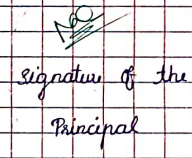 Signature of the
Principal